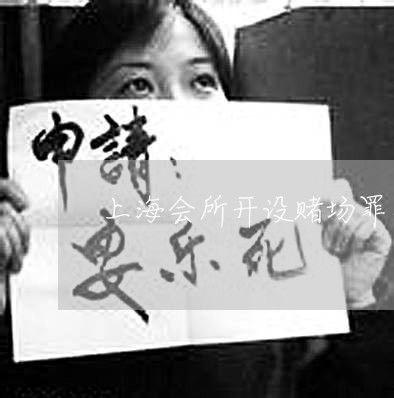 申請:
上海会所开设赌场罪
要乐死